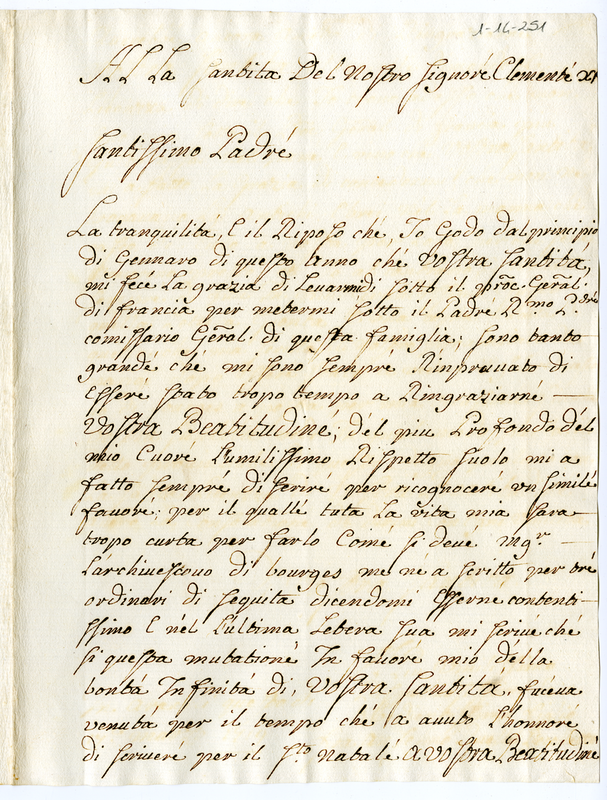 1-16-251
AL La Santita Del Nostro Signoré Clementé XI
Santissimo Padré
La tranquilitá, E il Riposo ché, Io Godo dal principio
di Gennaro di questo Anno ché Vostra Santitá,
mi fecé La grazia di Leuarmidi sotto il proc. Geral.
di francia per metermi sotto il Padré R.mo P.dré
comissario Geral. di questa famiglia; sono tanto
grandé ché mi sono sempré Rinprouato di
Esseré stato tropo tempo a Ringraziarné
Vostra Beatitudiné; dél piu Profondo dél
mio Cuoré L'umilissimo Rispetto suolo mi a
fatto sempré di feriré per ricognoceré un similé
fauoré; per il quallé tuta La vita mia sara
tropo curta per farlo Comé si deué Mgr
L'archiuescouo di bourges me ne a scritto per tré
ordinari di seguita dicendomi Esserne contenti-
ssimo E nél L'ultima Letera sua mi scriué ché
si questa mutationé In fauoré mio délla
bontá Infinitá di, Vostra Santitá, fuceua
venutá per il tempo ché a auuto L'honnoré
di scriueré per il S.to Natalé A Vostra Beatitudiné